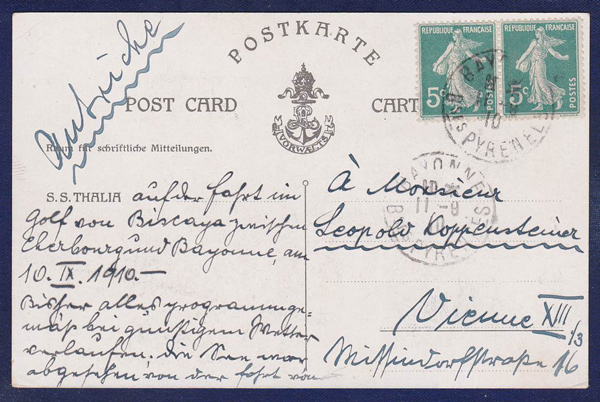 Autriche
POSTKARTE
POST CARD
CART
Raum für schriftliche Mitteilungen.
VORWÄRTS
REPUBLIQUE FRANÇAISE
5c
POSTES
REPUBLIQUE FRANÇAISE
5c
POSTES
BAYONNE
11 -9
10
BSES PYRENEES
S.S. THALIA auf der Fahrt im
Golf von Biscaya zwischen
Cherbourg und Bayonne, am
10. IX. 1910.—
Bisher alles programmge-
mäß bei günstigem Wetter
verlaufen. Die See war
abgesehen von der Fahrt von
À Monsieur
Leopold Koppensteiner
Vienne XIII/3
Missindorfstraße 16